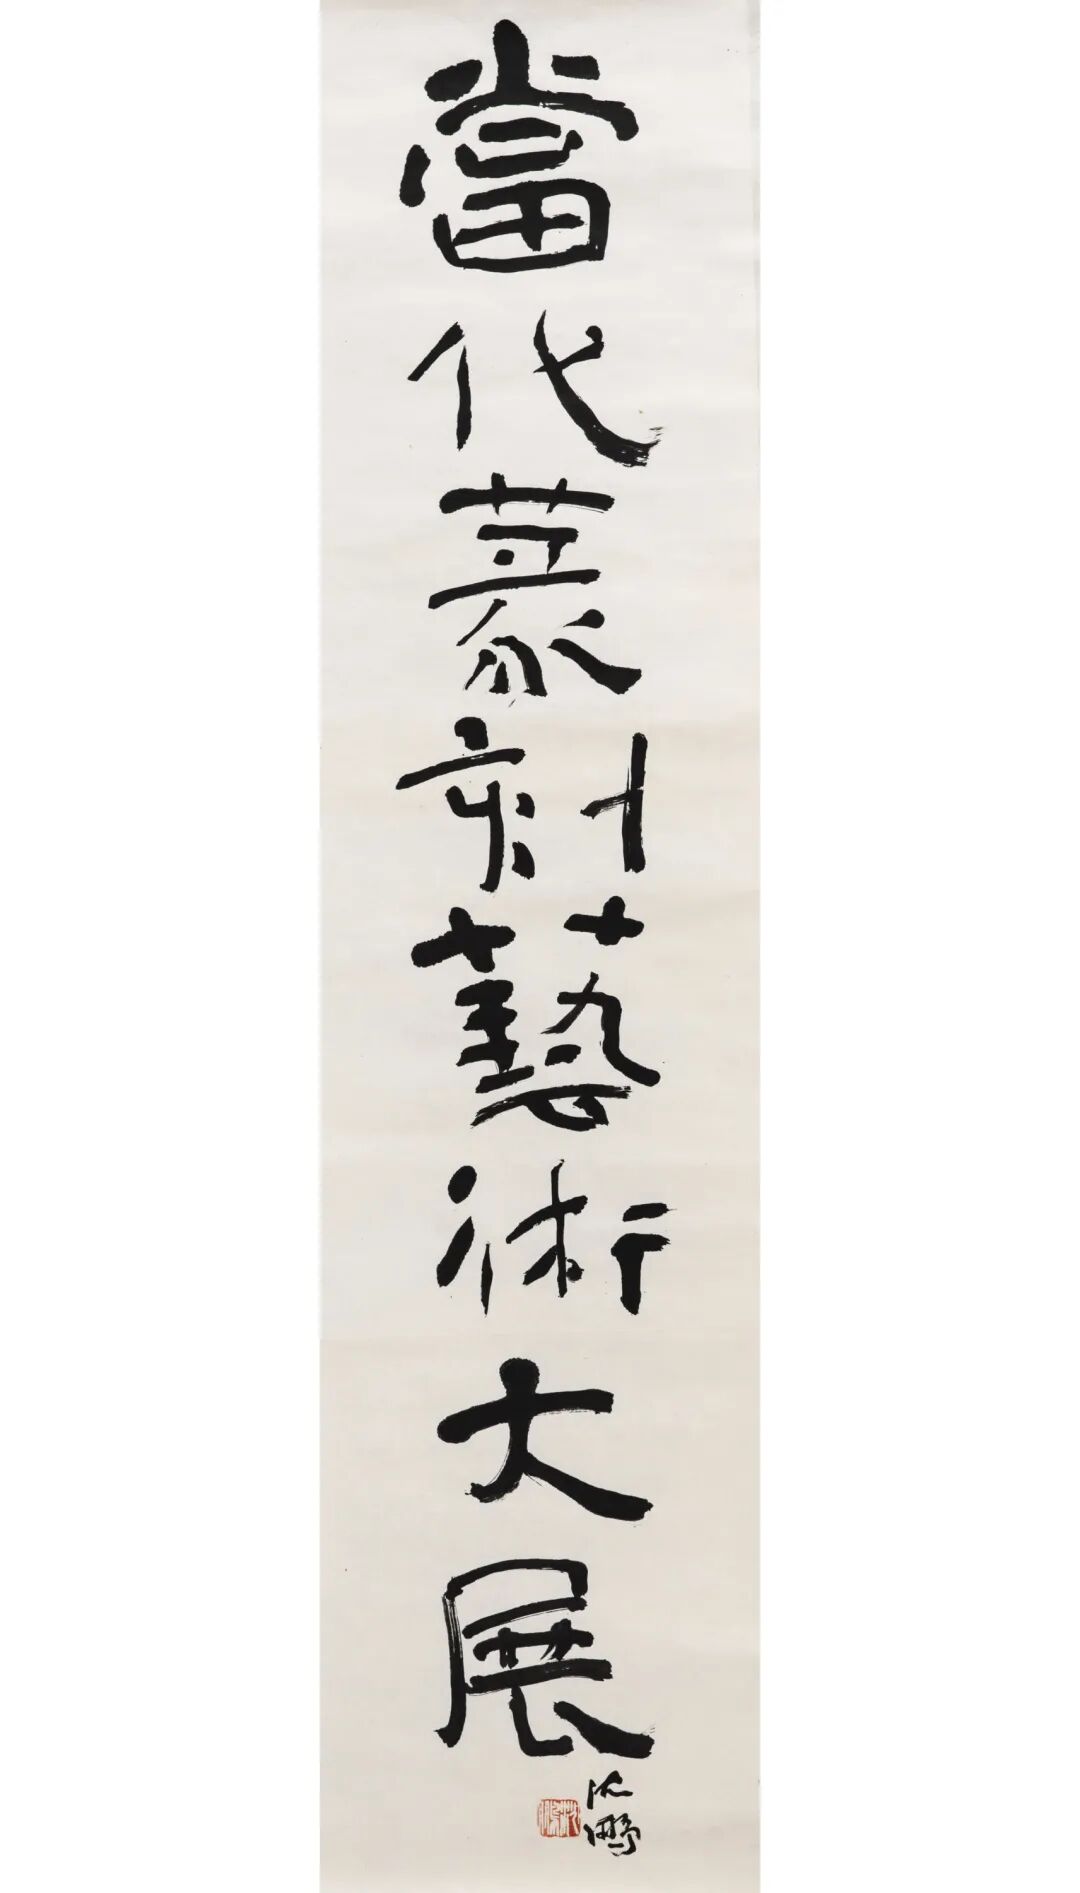 當代篆刻藝術大展
沈鵬